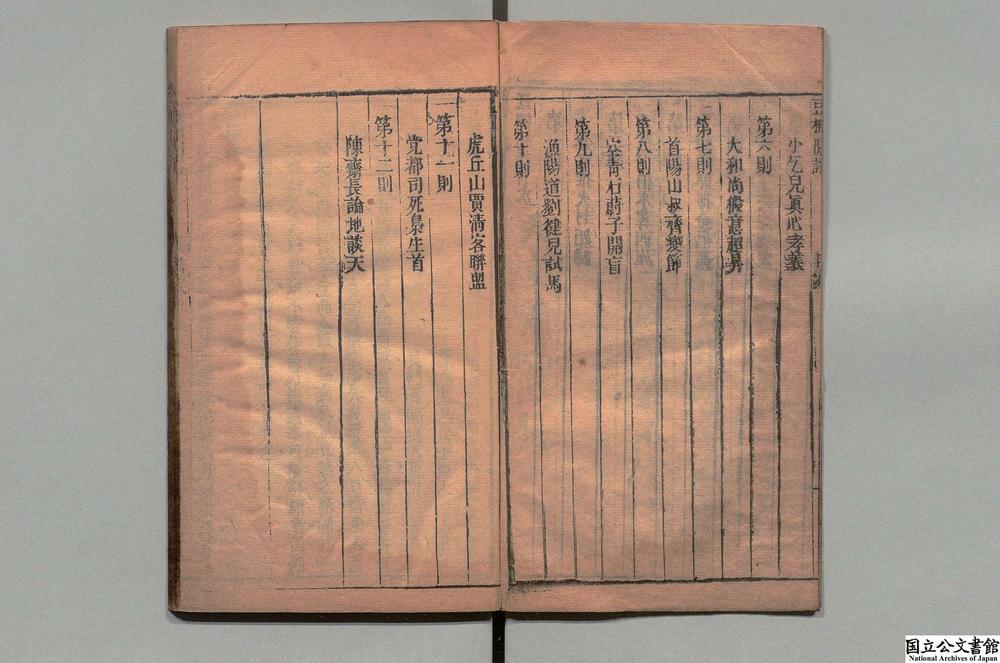 豆棚閒話
小乞兒眞心孝義
第六則
大和尚假意超昇
第七則
首陽山叔齊變節
第八則
空青石蔚子開盲
第九則
漁陽道劉健兒試馬
第十則
虎丘山賈清客聯盟
第十一則
党都司死梟生首
第十二則
陳齋長論地談天
国立公文書館
National Archives of Japan